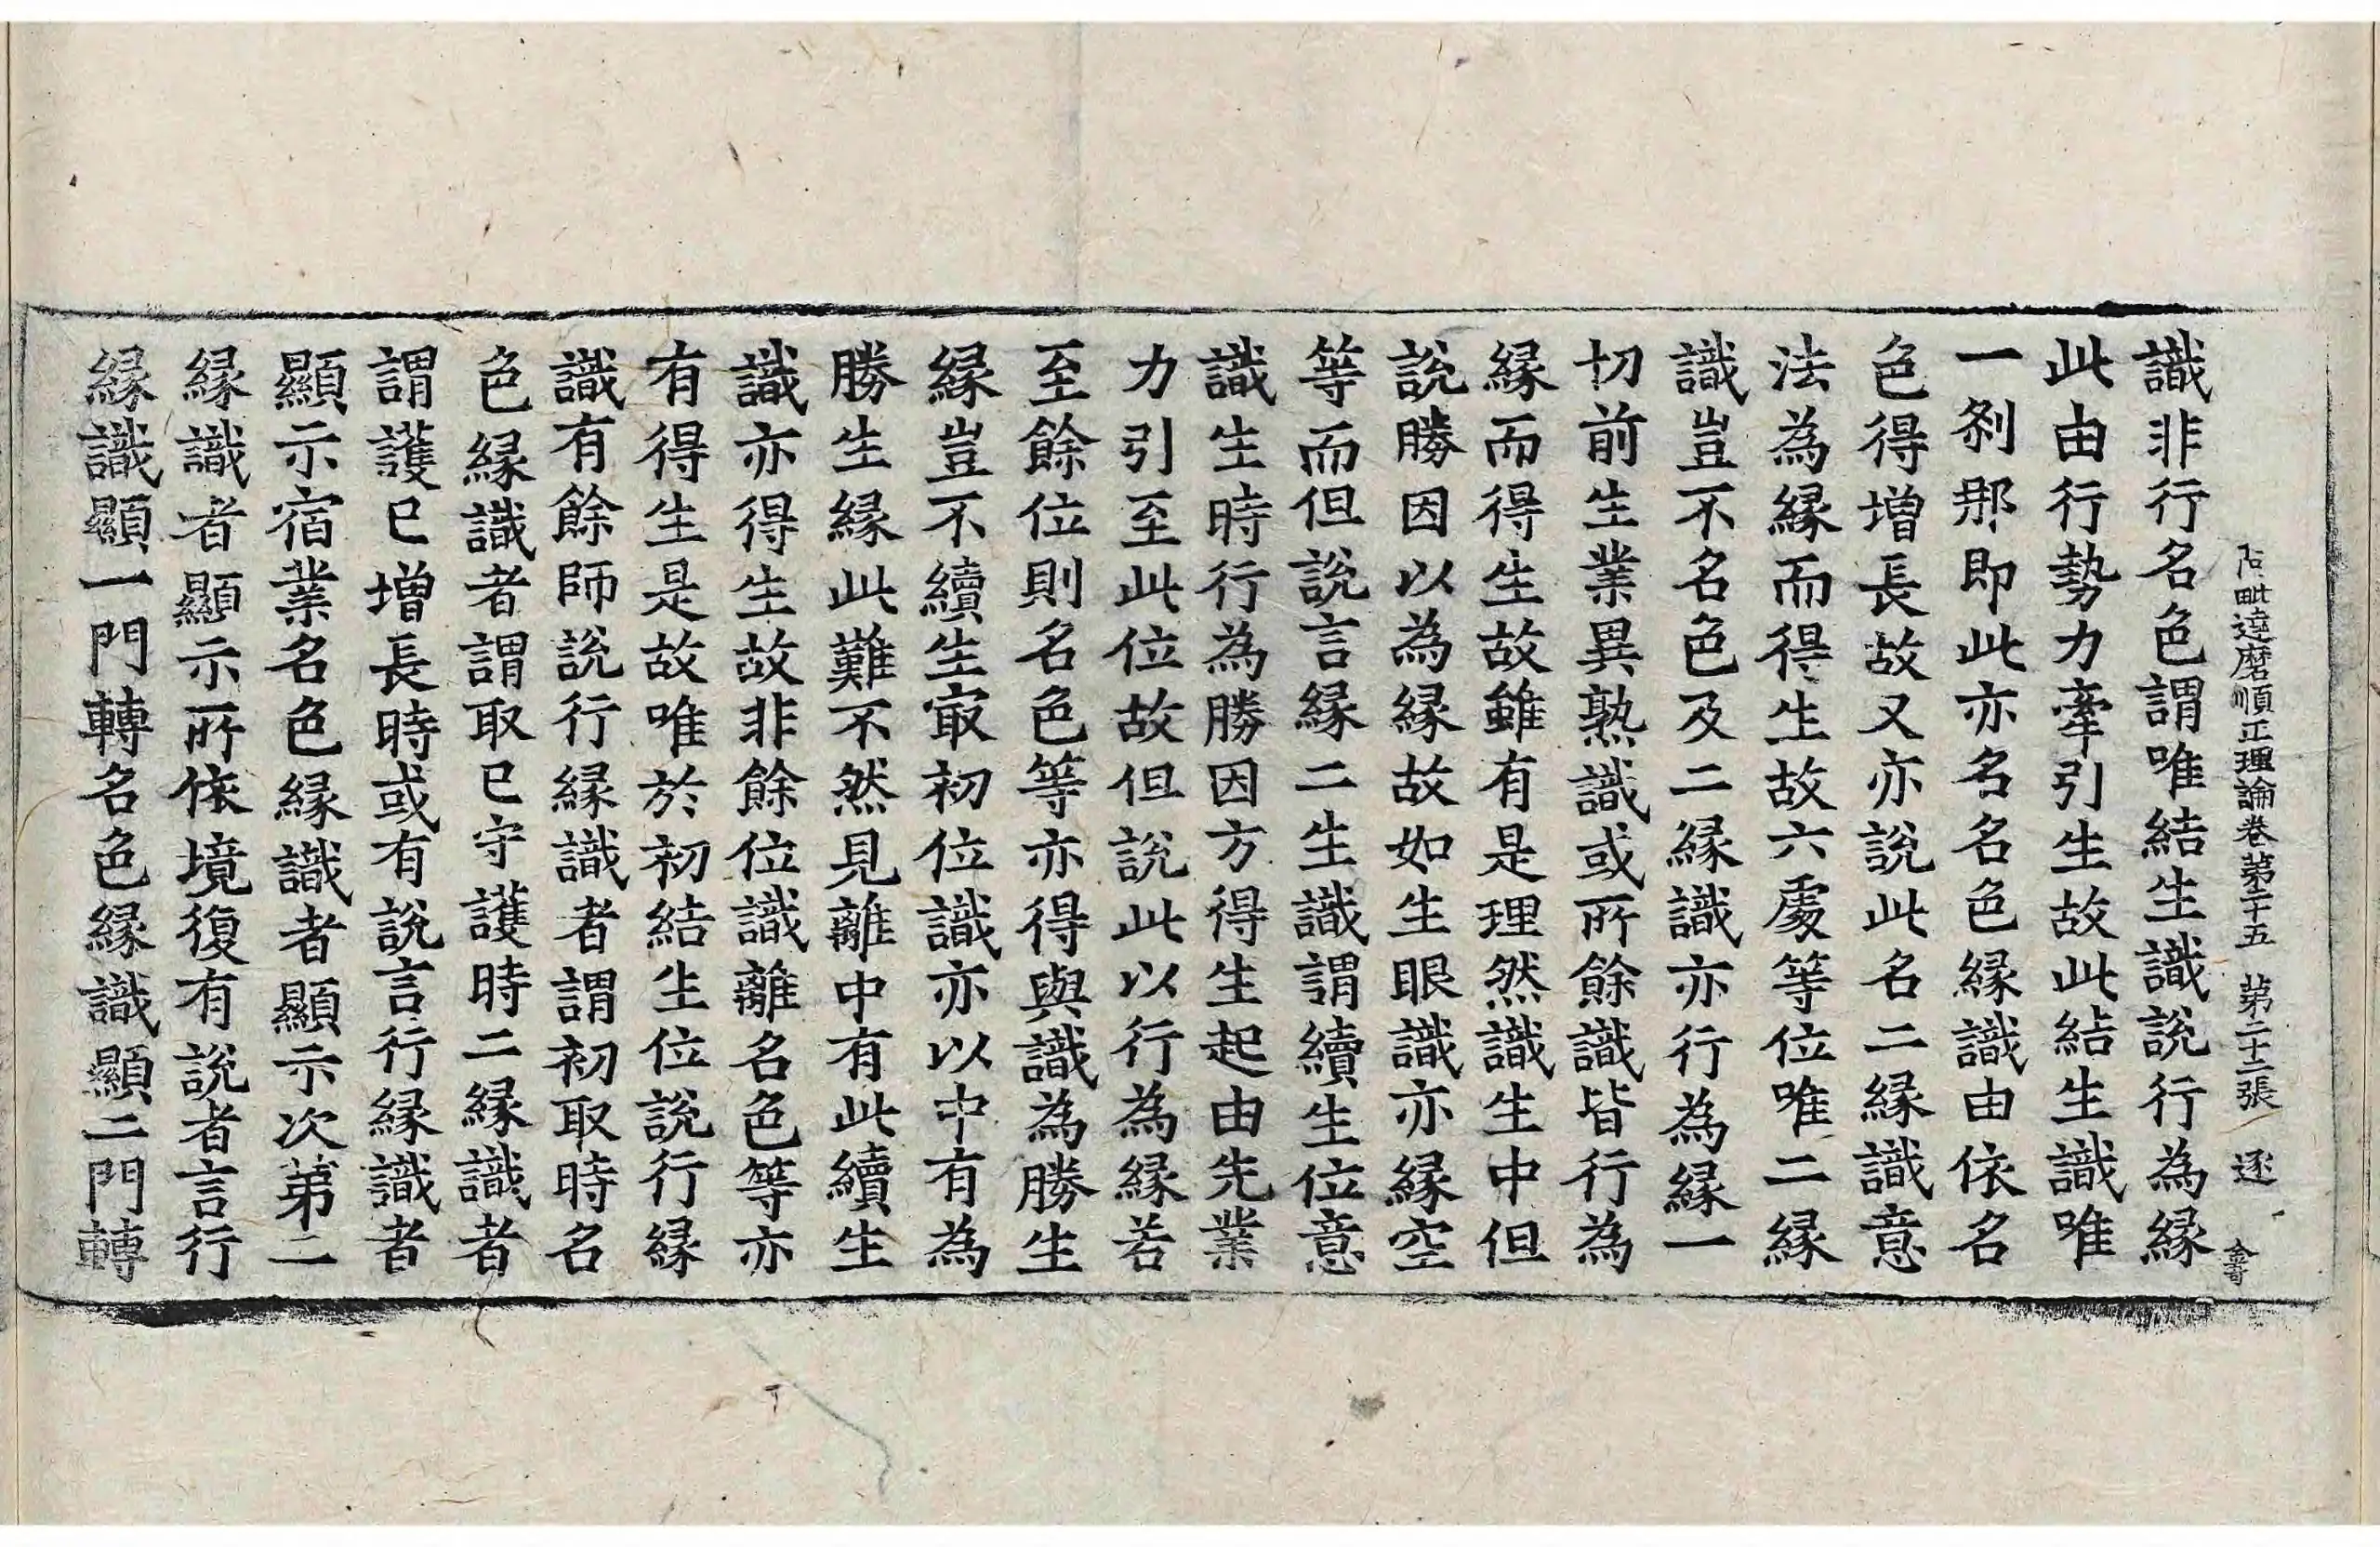 阿毗達磨順正理論卷第二十五 第二十二張 逐
識非行名色謂唯結生識說行為縁
此由行勢力牽引生故此結生識唯
一剎那即此亦名名色縁識由依名
色得增長故又亦說此名二縁識意
法為縁而得生故六處等位唯二縁
識豈不名色及二縁識亦行為縁一
切前生業異熟識或所餘識皆行為
縁而得生故雖有是理然識生中但
說勝因以為縁故如生眼識亦縁空
等而但說言縁二生識謂續生位意
識生時行為勝因方得生起由先業
力引至此位故但說此以行為縁若
至餘位則名色等亦得與識為勝生
縁豈不續生㝡初位識亦以中有為
勝生縁此難不然見離中有此續生
識亦得生故非餘位識離名色等亦
有得生是故唯於初結生位說行縁
識有餘師說行縁識者謂初取時名
色縁識者謂取已守護時二縁識者
謂護已增長時或有說言行縁識者
顯示宿業名色縁識者顯示次第二
縁識者顯示所依境復有說者言行
縁識顯一門轉名色縁識顯二門轉